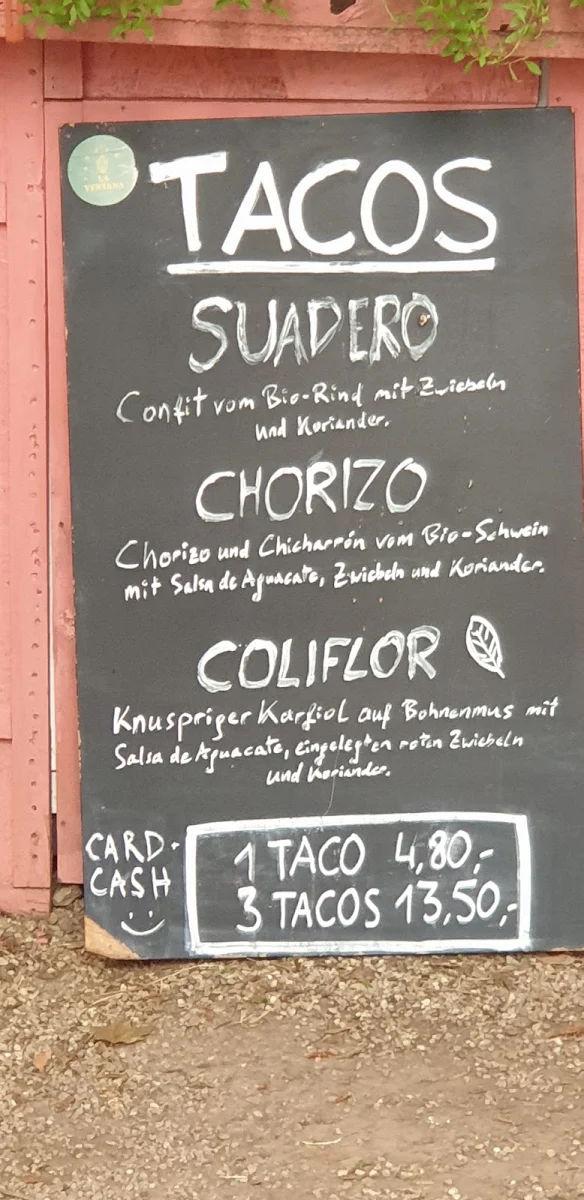 LA
VENTANA
TACOS
SUADERO
Confit vom Bio-Rind mit Zwiebeln
und Koriander.
CHORIZO
Chorizo und Chicharrón vom Bio-Schwein
mit Salsa de Aguacate, Zwiebeln und Koriander.
COLIFLOR
Knuspriger Karfiol auf Bohnenmus mit
Salsa de Aguacate, eingelegten roten Zwiebeln
und Koriander.
CARD+
CASH
1 TACO 4,80,-
3 TACOS 13,50,-